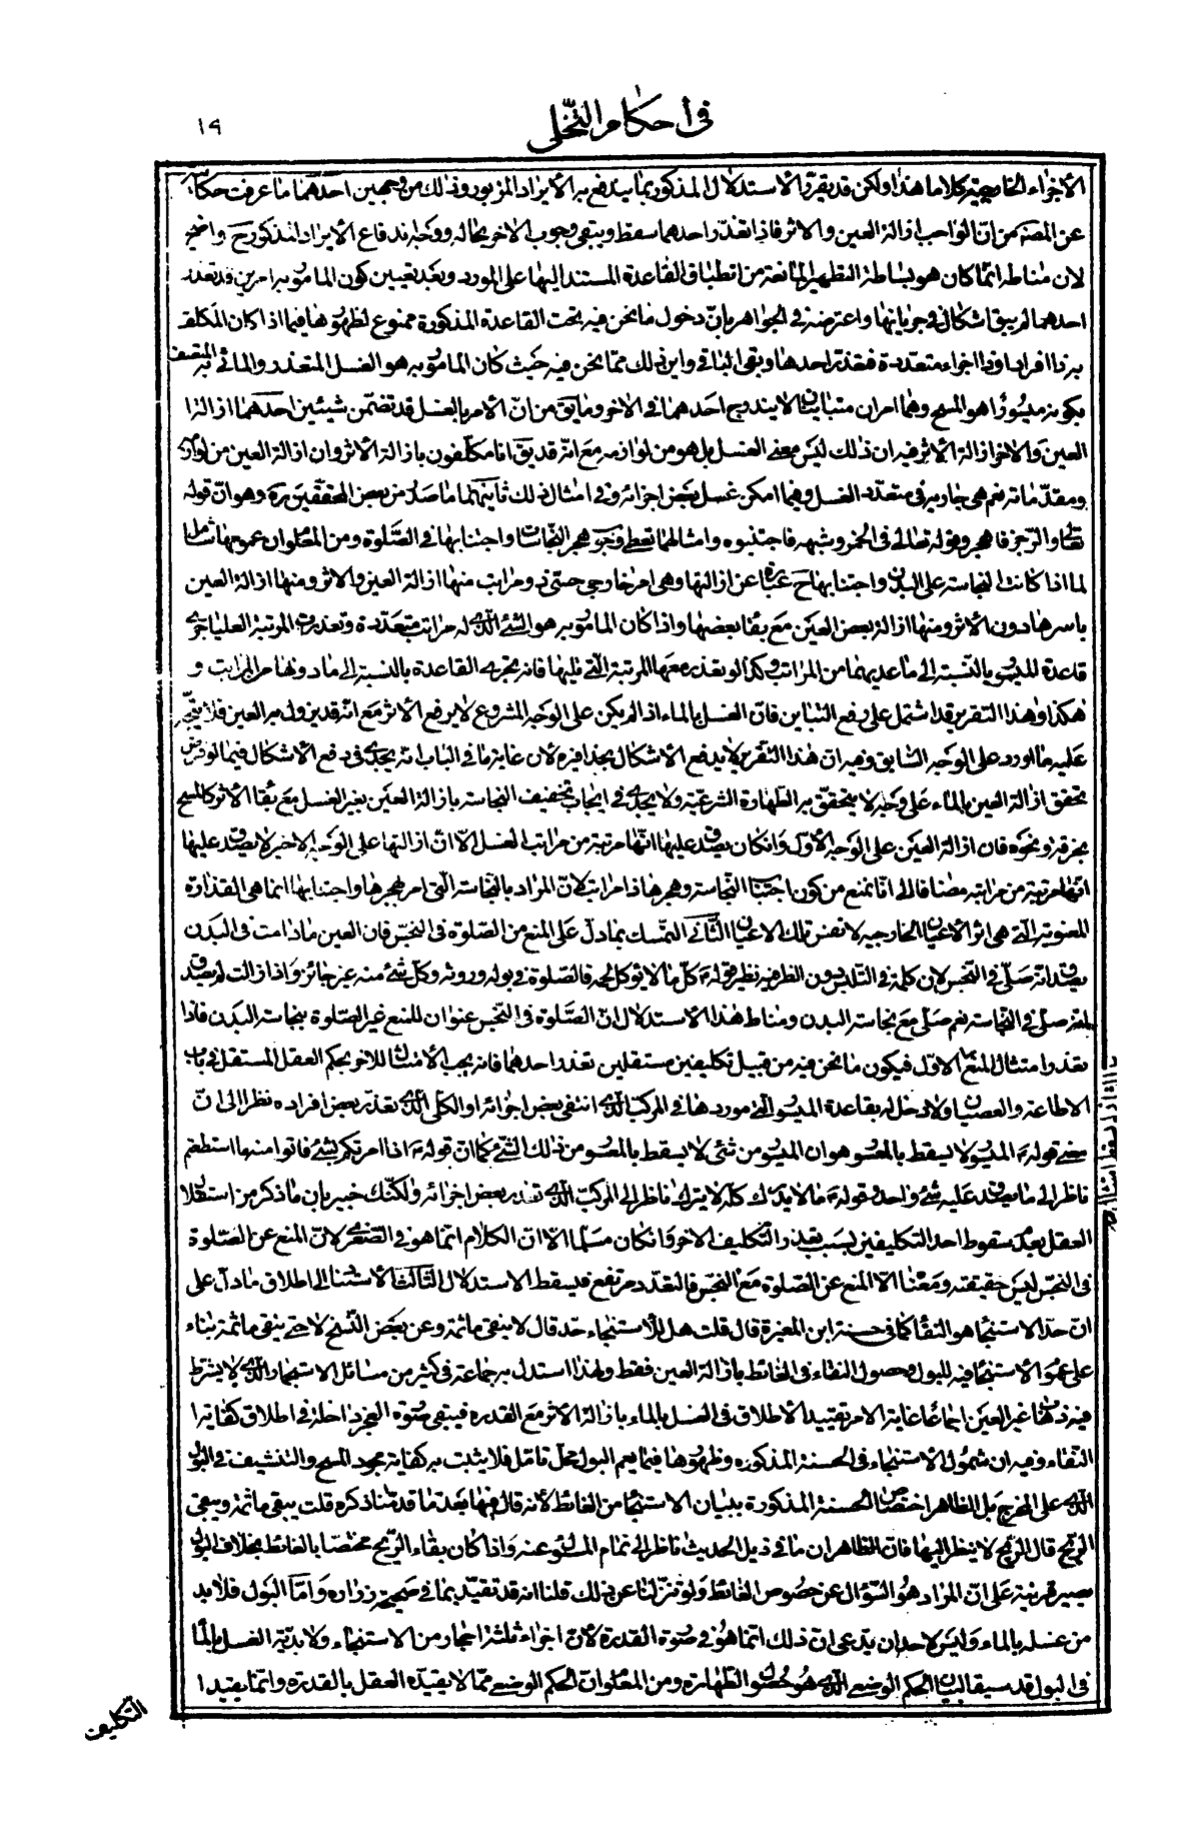 في أحكام التخلي
١٩
الأجزاء الخارجية كلاما هذا ولكن قد يقرر الاستدلال المذكور بما يندفع به الأيراد المزبور وذلك من وجهين احدهما ما عرفت حكاية
عن المصنف من انّ الواجب ازالة العين والاثر فاذا تعذّر احدهما سقط ويبقى وجوب الاخر بحاله ووجه اندفاع الأيراد المذكور ح واضح
لان مناطه انّما كان هو بساطة التطهير المانعة من انطباق القاعدة المستند اليها على المورد وبعد تعيين كون المأمور به امرين قد تعذر
احدهما لم يبق اشكال في جريانها واعترضه في الجواهر بانّ دخول ما نحن فيه تحت القاعدة المذكورة ممنوع لظهورها فيما اذا كان المكلف
به ذا افراد او ذا اجزاء متعددة فتعذر احدها وبقى الباقي واين ذلك ممّا نحن فيه حيث كان المأمور به هو الغسل المتعذر والمأتي به المتصف
بكونه ميسورا هو المسح وهما امران متباينان لا يندرج احدهما في الاخر وما يق من انّ الأمر بالغسل قد تضمّن شيئين احدهما ازالة
العين والاخر ازالة الأثر فيه ان ذلك ليس معنى الغسل بل هو من لوازمه مع انّه قد يق انا مكلّفون بازالة الأثر وان ازالة العين من لوازم
ومقدّماته نعم هي جارية في متعدد الغسل وفيما امكن غسل بعض اجزائه وفي امثال ذلك ثانيهما ما صدر من بعض المحققين ره وهو انّ قوله
تعالى والرجز فاهجر وقوله تعالى في الخمر وشبهه فاجتنبوه وامثالهما تعطي وجوب هجر النجاسات واجتنابها في الصّلوة ومن المعلوم ان عمومها شامل
لما اذا كانت النجاسة على البدن واجتنابها ح عبارة عن ازالتها وهي امر خارجي حسّي ذو مراتب منها ازالة العين والاثر ومنها ازالة العين
باسرها دون الأثر ومنها ازالة بعض العين مع بقاء بعضها واذا كان المأمور به هو الشئ الذي له مراتب متعدّدة وتعذرت المرتبة العليا جرى
قاعدة الميسور بالنّسبة الى ما عديها من المراتب وكذا لو تعذر معها المرتبة الّتي تليها فانه يجري القاعدة بالنسبة الى ما دونها من المراتب و
هكذا وهذا التقرير قد اشتمل على رفع التباين فانّ الغسل بالماء اذا لم يكن على الوجه المشروع لا يرفع الأثر مع انّه قد يزول به العين فلا يتّجه
عليه ما اورد على الوجه السّابق وفيه ان هذا التقرير لا يدفع الأشكال بحذافيره لان غاية ما في الباب انه يجدي في دفع الاشكال فيما لو فرض
تحقق ازالة العين بالماء على وجه لا يتحقّق به الطّهارة الشرعيّة ولا يجدي في ايجاب تخفيف النجاسة بازالة العين بغير الغسل مع بقاء الأثر كالمسح
بخرقة ونحوه فان ازالة العين على الوجه الأول وان كان يصدق عليها انّها مرتبة من مراتب الغسل الّا انّ ازالتها على الوجه الاخير لا يصدق عليها
انّها مرتبة من مراتبه مضافا الى انّا نمنع من كون اجتناب النجاسة وهجرها ذا مراتب لانّ المراد بالنجاسة الّتي امر بهجرها واجتنابها انما هي القذارة
المعنوية الّتي هي اثر الأعيان الخارجية لا نفس تلك الاعيان الثّاني التمسّك بما دلّ على المنع من الصّلوة في النجس فان العين ما دامت في البدن
يصدق انّه صلّى في النجس لان كلمة في للتلبس دون الظرفية نظير قوله كلّ ما لا يؤكل لحمه فالصّلوة في بوله وروثه وكلّ شئ منه غير جائز واذا زالت لم يصدق
انه صلى في النجاسة نعم صلّى مع نجاسة البدن ومناط هذا الاستدلال انّ الصّلوة في النّجس عنوان للمنع غير الصّلوة بنجاسة البدن فاذا
تعذر امتثال المنع الاوّل فيكون ما نحن فيه من قبيل تكليفين مستقلين تعذر احدهما فانه يجب الأمتثال للاخر بحكم العقل المستقل في باب
الاطاعة والعصيان ولا دخل له بقاعدة الميسور الّتي موردها في المركب الّذي انتفى بعض اجزائه او الكلّي الّذي تعذر بعض افراده نظرا الى انّ
معنى قوله الميسور لا يسقط بالمعسور هو ان الميسور من شئ لا يسقط بالمعسور من ذلك الشئ كما انّ قوله اذا امرتكم بشئ فأتوا منه ما استطعتم
ناظر الى ما يصدق عليه شئ واحد وقوله ما لا يدرك كلّه لا يترك ناظر الى المركّب الّذي تعذر بعض اجزائه ولكنّك خبير بان ما ذكر من استقلال
العقل بعدم سقوط احد التكليفين بسبب تعذر التكليف الاخر وان كان مسلّما الّا ان الكلام انّما هو في الصّغرى لانّ المنع عن الصّلوة
في النجس ليس حقيقته ومعناه الّا المنع عن الصّلوة مع النجس فالتعدّد مرتفع فيسقط الاستدلال الثالث الأستناد الى اطلاق ما دلّ على
انّ حدّ الاستنجاء هو النقاء كما في حسنة ابن المغيرة قال قلت هل للأستنجاء حدّ قال لا ينقى ما ثمة وعن بعض النّسخ لا حتى ينقى ما ثمة بناء
على عموم الأستنجاء فيه للبول وحصول النقاء في الغائط بازالة العين فقط ولهذا استدل به جماعة في كثير من مسائل الاستنجاء والّذي لا يشترط
فيه ذهاب غير العين اجماعا غاية الامر تقييد الاطلاق في الغسل بالماء بازالة الاثر مع القدرة فيبقى صورة العجز داخلة في اطلاق كفاية
النّقاء وفيه ان شمول الأستنجاء في الحسنة المذكوره وظهورها فيما يعم البول محلّ تأمّل فلا يثبت به كفاية مجرد المسح والتنشيف في البول
الّذي على المخرج بل الظاهر اختصاص الحسنة المذكورة ببيان الاستنجاء من الغائط لأنه قال فيها بعد ما قدمنا ذكره قلت يبقى ما ثمة ويبقى
الرّيح قال الرّيح لا ينظر اليها فانّ الظاهر ان ما في ذيل الحديث ناظر الى تمام المسئول عنه واذا كان بقاء الرّيح مختصّا بالغائط بخلاف البول
يصير قرينة على انّ المراد هو السّؤال عن خصوص الغائط ولو تنزّلنا عن ذلك قلنا انه قد تقيّد بما في صحيحة زرارة وامّا البول فلا بد
من غسله بالماء وليس لاحد ان يدّعي ان ذلك انّما هو في صورة القدرة لأنّ اجزاء ثلثة احجار من الاستنجاء ولا بديّة الغسل بالماء
في البول قد سيقا لبيان الحكم الوضعي الّذي هو حصول الطّهارة ومن المعلوم انّ الحكم الوضعي ممّا لا يقيّده العقل بالقدرة وانّما يقيد
التكليف